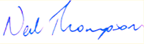 Neil Thompson